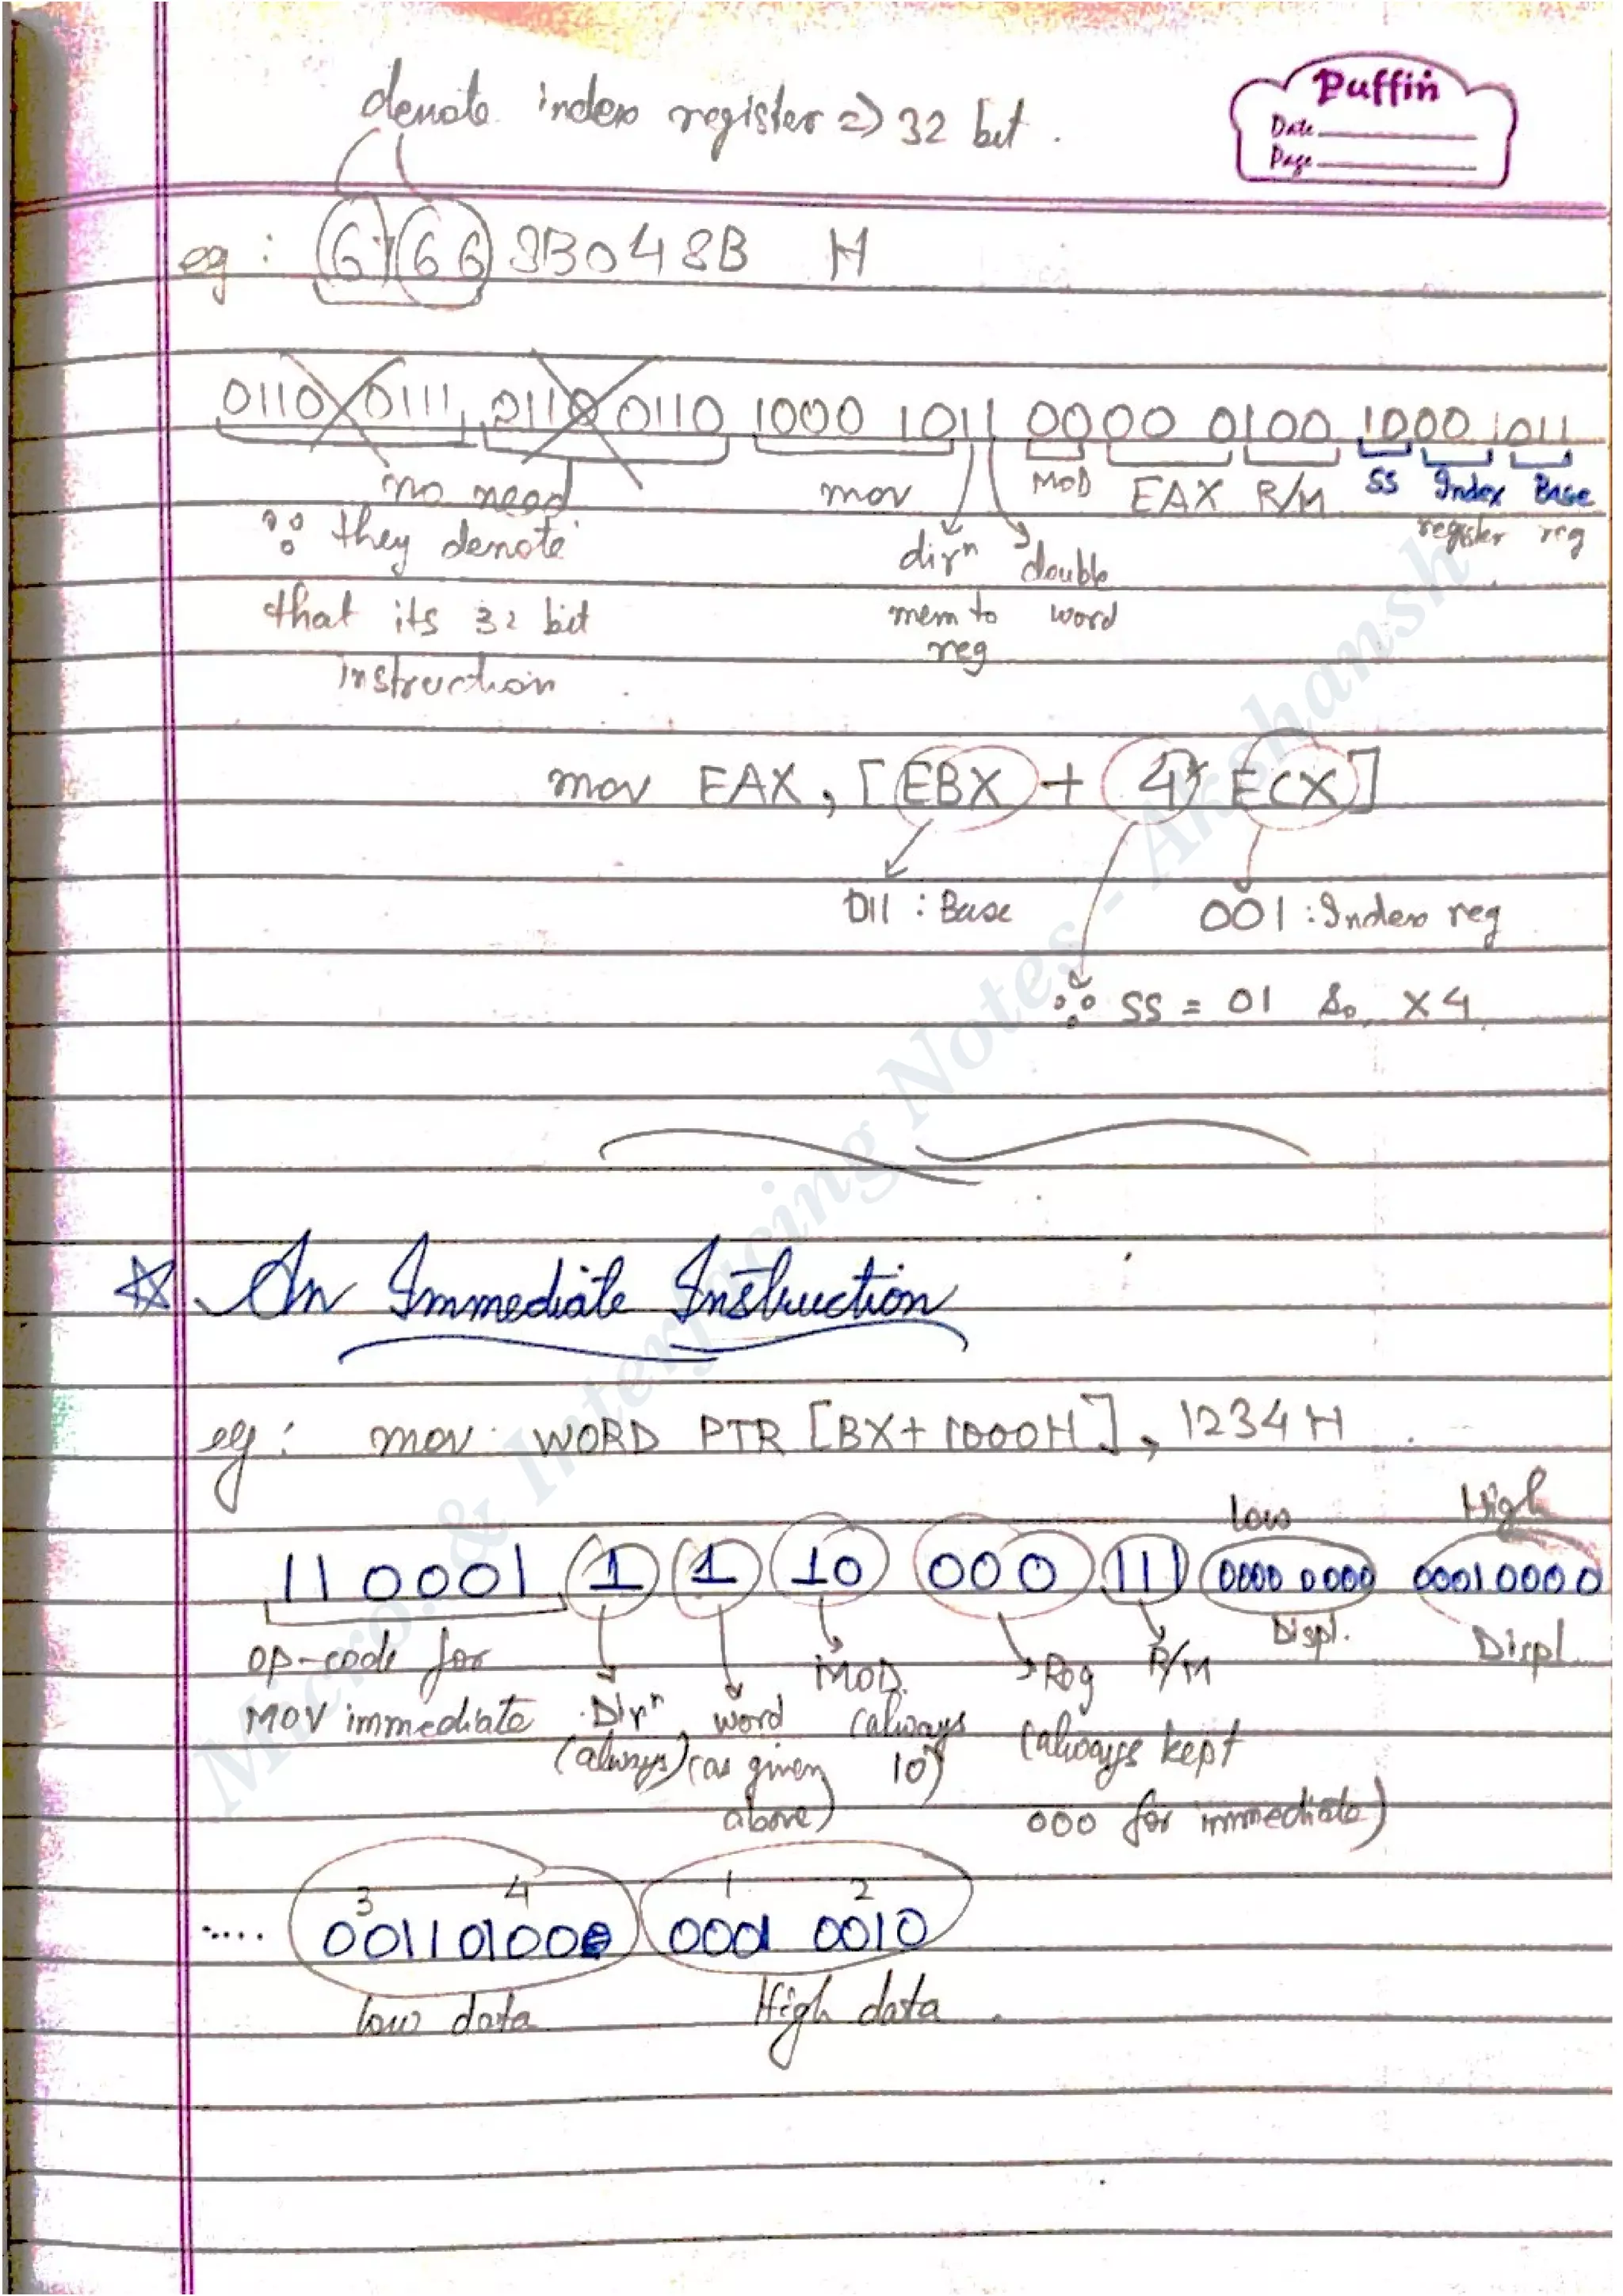 Puffin
Date
Page
denote index register => 32 bit.
eg : 67 66 8B048B H
0110 0111 0110 0110 1000 1011 0000 0100 1000 1011
no need mov MOD EAX R/M SS Index Base
∵ they denote dirⁿ double register reg
that its 32 bit mem to word
instruction reg
mov EAX, [EBX + 4* ECX]
011 : Base 001 : Index reg
∵ SS = 01 So, X4
☆ An Immediate Instruction
eg: mov WORD PTR [BX+1000H], 1234H
Low High
110001 1 1 10 000 111 0000 0000 00010000
op-code for MOD. Reg R/M Displ. Displ.
MOV immediate Dirⁿ word (always (always kept
(always) (as given 10) 000 for immediate)
above)
3 4 1 2
..... 00110100 0001 0010
low data High data
Micro. & Interfacing Notes - Akshansh